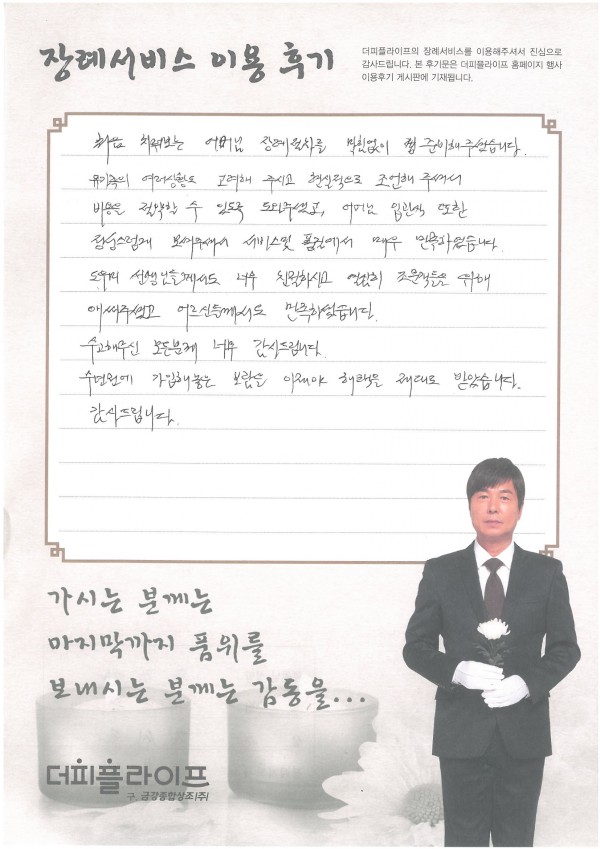 장례서비스 이용 후기
더피플라이프의 장례서비스를 이용해주셔서 진심으로
감사드립니다. 본 후기문은 더피플라이프 홈페이지 행사
이용후기 게시판에 기재됩니다.
처음 치뤄보는 어머님 장례절차를 막힘없이 잘 준비해주셨습니다.
유가족의 여러상황도 고려해 주시고 현실적으로 조언해 주셔서
비용을 절약할 수 있도록 도와주셨고, 어머님 입관식 또한
정성스럽게 보여주셔서 서비스및 품질에서 매우 만족하였습니다.
도우미 선생님들께서도 너무 친절하시고 열심히 조문객들을 위해
애써주셨고 어르신들께서도 만족하셨습니다.
수고해주신 모든분께 너무 감사드립니다.
수년전에 가입해놓은 보람을 이제야 혜택을 제대로 받았습니다.
감사드립니다.
가시는 분께는
마지막까지 품위를
보내시는 분께는 감동을...
더피플라이프
구. 금강종합상조(주)